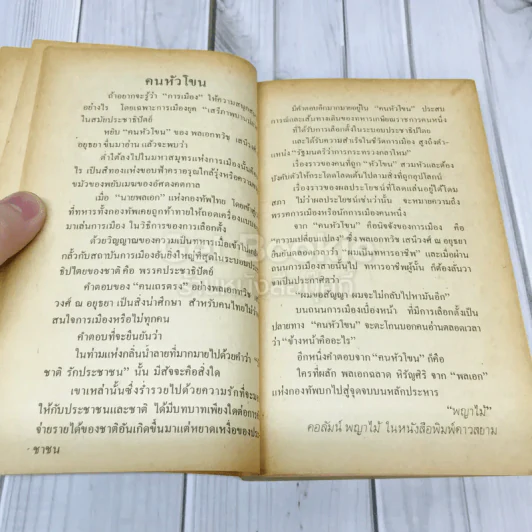 คนหัวโขน
ถ้าอยากจะรู้ว่า “การเมือง” ให้ความสนุกสน
อย่างไร โดยเฉพาะการเมืองยุค
ในสมัยประชาธิปัตย์
หยิบ “คนหัวโขน” ของ พลเอกทวิช เสนีวงศ์
อยุธยา ขึ้นมาอ่าน แล้วจะพบว่า
คำใดต้องไปในมหาสมุทรแห่งการเมืองนั้น
ไร เป็นสีทองแห่งขอบฟ้าครายรุณใกล้รุ่งหรือความ
ขมัวของพยับเมฆของอัศดงคตกาล
เมื่อ “นายพลเอก” แห่งกองทัพไทย
ที่ทหารทั้งกองทัพเคยถูกทำทายให้ถอดเครื่องแบบ
มาเล่นการเมือง ในวิธีการของการเลือกตั้ง
ด้วยวิญญาณของความเป็นทหารเมื่อเข้าใน
กลั้วกับสถาบันการเมืองอันยิ่งใหญ่ที่สุดในระบอบ
ธิปไตยของชาติ คือ พรรคประชาธิปัตย์
คำตอบของ “คนเถรตรง” อย่างพลเอกทวิช
วงศ์ ณ อยุธยา เป็นสิ่งน่าศึกษา สำหรับคนไทยไม่ว่า
สนใจการเมืองหรือไม่ทุกคน
คำตอบที่จะยืนยันว่า
ในท่ามแห่งกลิ่นน้ำลายที่มากมายไปด้วยคำว่า
ชาติ รักประชาชน” นั้น มีสัจจะคือสิ่งใด
เขาเหล่านั้นซึ่งร่ำรวยไปด้วยความรักที่จะ
ให้กับประชาชนและชาติ ได้มีบทบาทเพียงใดต่อการ
จ่ายรายได้ของชาติอันเกิดขึ้นมาแต่หยาดเหงื่อของ
ชาชน
มีคำตอบอีกมากมายอยู่ใน “คนหัวโขน” ประสบ
การณ์และเส้นทางเดินของทหารเกษียณราชการคนหนึ่ง
ที่ได้รับการเลือกตั้งในระบอบประชาธิปไตย
และได้ความสำเร็จในชีวิตการเมือง สูงถึงตำ-
แหน่ง “รัฐมนตรีว่าการกระทรวงกลาโหม”
เรื่องราวของคนที่ถูก “หัวโขน” สวมหัวและต้อง
บังคับตัวให้กระโดดโลดเต้นไปตามสิ่งที่ถูกอุปโลกน์
เรื่องราวของผลประโยชน์ที่โลดแล่นอยู่ได้โดม
สภา ไม่ว่าผลประโยชน์เช่นว่านั้น จะหมายความถึง
พรรคการเมืองหรือนักการเมืองคนหนึ่ง
จาก “คนหัวโขน” คืออนิจจังของการเมือง คือ
“ความเปลี่ยนแปลง” ซึ่ง พลเอกทวิช เสนีวงศ์ ณ อยุธยา
ยืนยันตลอดเวลาว่า ผมเป็น “ทหารอาชีพ” และเมื่อผ่าน
ถนนการเมืองสายนั้นไป ทหารอาชีพผู้นั้น ก็ต้องสันวา
จาเป็นประกาศิตว่า
“ผมขอสัญญา ผมจะไม่กลับไปหามันอีก”
บนถนนการเมืองเบื้องหน้า ที่มีการเลือกตั้งเป็น
ปลายทาง “คนหัวโขน” จะตะโกนบอกคนอ่านตลอดเวลา
ว่า “ข้างหน้าคืออะไร”
อีกหนึ่งคำตอบจาก “คนหัวโขน” ก็คือ
ใครที่ผลัก พลเอกฉลาด หิรัญศิริ จาก “พลเอก”
แห่งกองทัพบกไปสู่จุดจบบนหลักประหาร
“พญาไม้”
คอลัมน์ พญาไม้ ในหนังสือพิมพ์ดาวสยาม